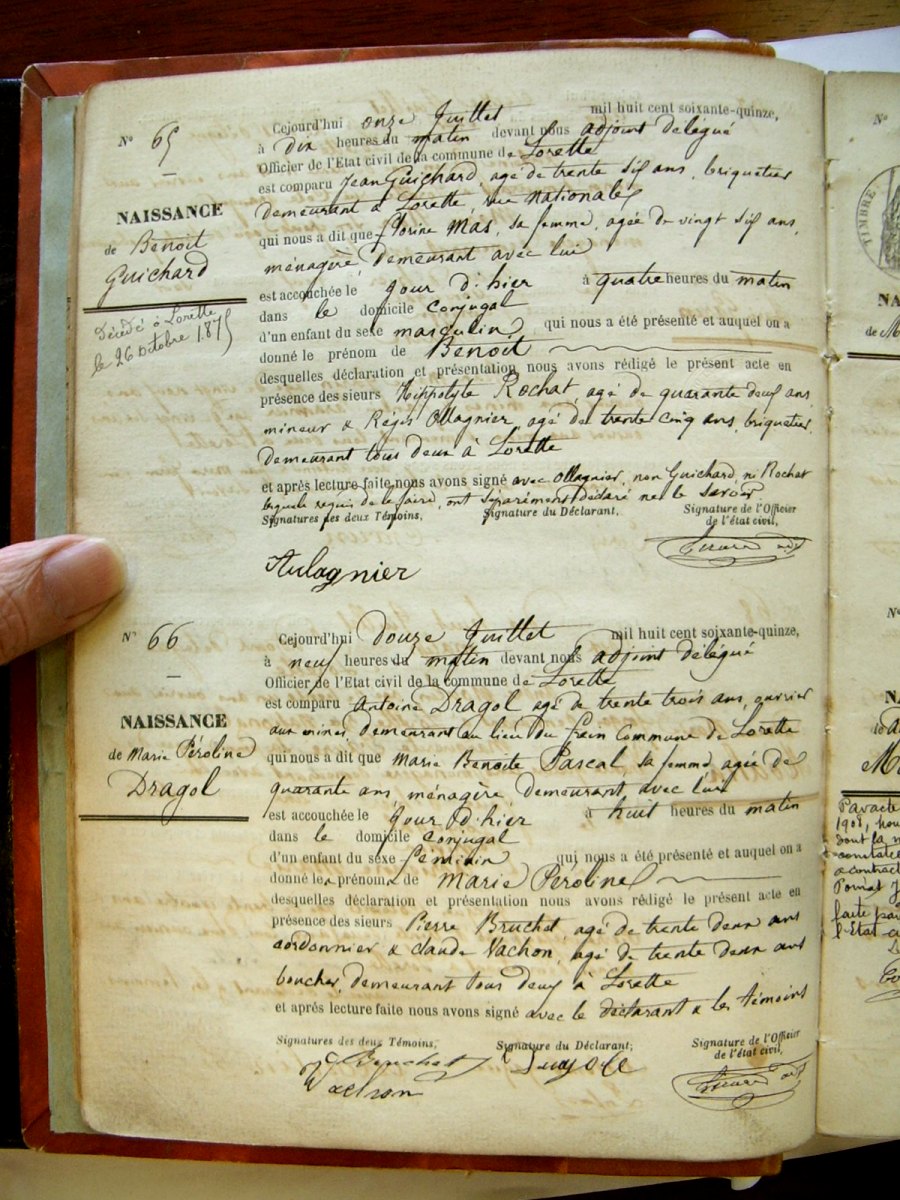 N° 65
NAISSANCE
de Benoit
Guichard
Décédé à Lorette
le 26 Octobre 1875
Cejourd'hui onze Juillet mil huit cent soixante-quinze,
à dix heures du matin devant nous adjoint délégué
Officier de l'Etat civil de la commune de Lorette
est comparu Jean Guichard, agé de trente six ans, briquetier
demeurant à Lorette, rue Nationale
qui nous a dit que Florine Mas, sa femme, agée de vingt six ans,
ménagère, demeurant avec lui
est accouchée le jour d'hier à quatre heures du matin
dans le domicile conjugal
d'un enfant du sexe masculin qui nous a été présenté et auquel on a
donné le prénom de Benoit
desquelles déclaration et présentation nous avons rédigé le présent acte en
présence des sieurs Hippolyte Rochat, agé de quarante deux ans
mineur & Régis Ollagnier, agé de trente cinq ans, briquetier,
demeurant tous deux à Lorette
et après lecture faite nous avons signé avec Ollagnier, non Guichard, ni Rochat
lesquels requis de le faire, ont séparément déclaré ne le savoir.
Signatures des deux Témoins, Signature du Déclarant, Signature de l'Officier
de l'état civil,
Aulagnier
N° 66
NAISSANCE
de Marie Péroline
Dragol
Cejourd'hui douze Juillet mil huit cent soixante-quinze,
à neuf heures du matin devant nous adjoint délégué
Officier de l'Etat civil de la commune de Lorette
est comparu Antoine Dragol agé de trente trois ans, ouvrier
aux mines, demeurant au lieu du Commune de Lorette
qui nous a dit que Marie Benoite Pascal sa femme, agée de
quarante ans ménagère, demeurant avec lui
est accouchée le jour d'hier à huit heures du matin
dans le domicile conjugal
d'un enfant du sexe féminin qui nous a été présenté et auquel on a
donné les prénoms de Marie Péroline
desquelles déclaration et présentation nous avons rédigé le présent acte en
présence des sieurs Pierre Bruchet, agé de trente deux ans
cordonnier & Claude Vachon, agé de trente deux ans
boucher, demeurant tous deux à Lorette
et après lecture faite nous avons signé avec le déclarant & les témoins
Signatures des deux Témoins, Signature du Déclarant, Signature de l'Officier
de l'état civil,
Bruchet
Vachon
N°
TIMBRE
NA
de M
N°
N
de
M
1908
l'Etat-c